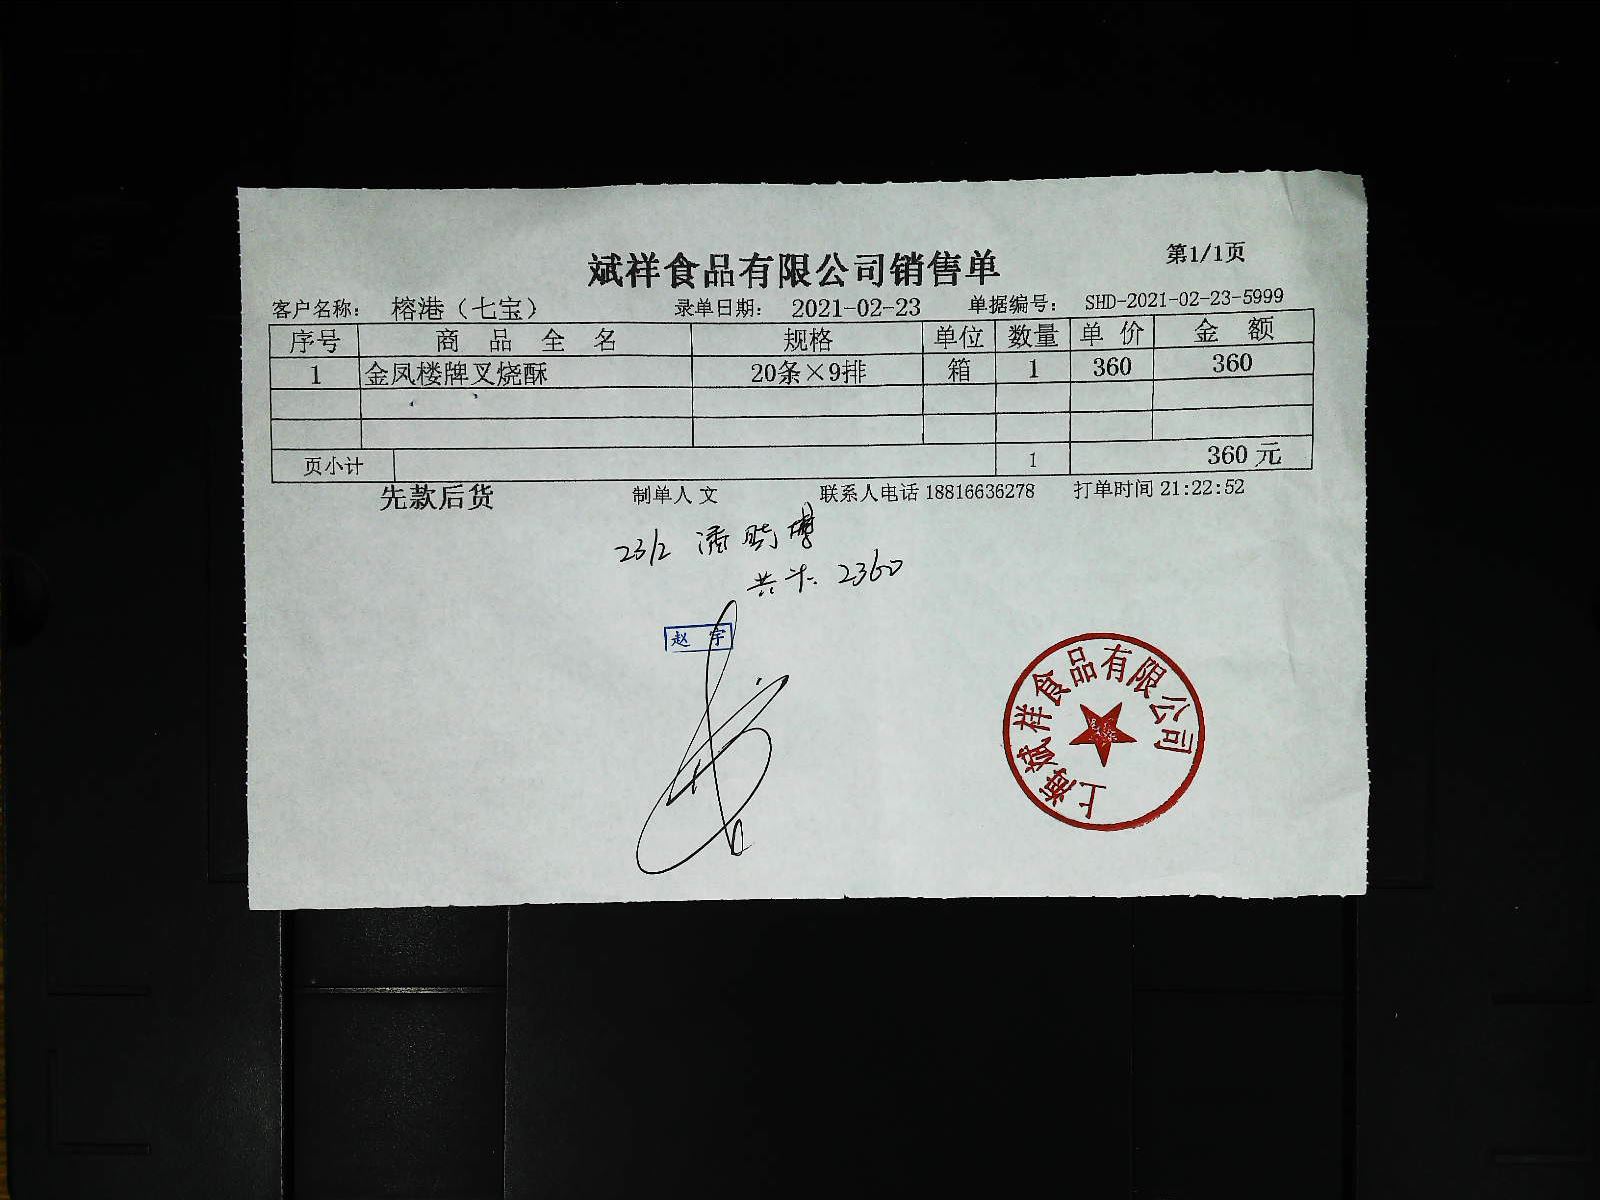 斌祥食品有限公司销售单
第1/1页
客户名称： 榕港（七宝） 录单日期： 2021-02-23 单据编号： SHD-2021-02-23-5999
序号 商品全名 规格 单位 数量 单价 金额
1 金凤楼牌叉烧酥 20条×9排 箱 1 360 360
页小计 1 360元
先款后货 制单人 文 联系人电话 18816636278 打单时间 21:22:52
23/2 潘
共计: 2360
赵宇
上海斌祥食品有限公司